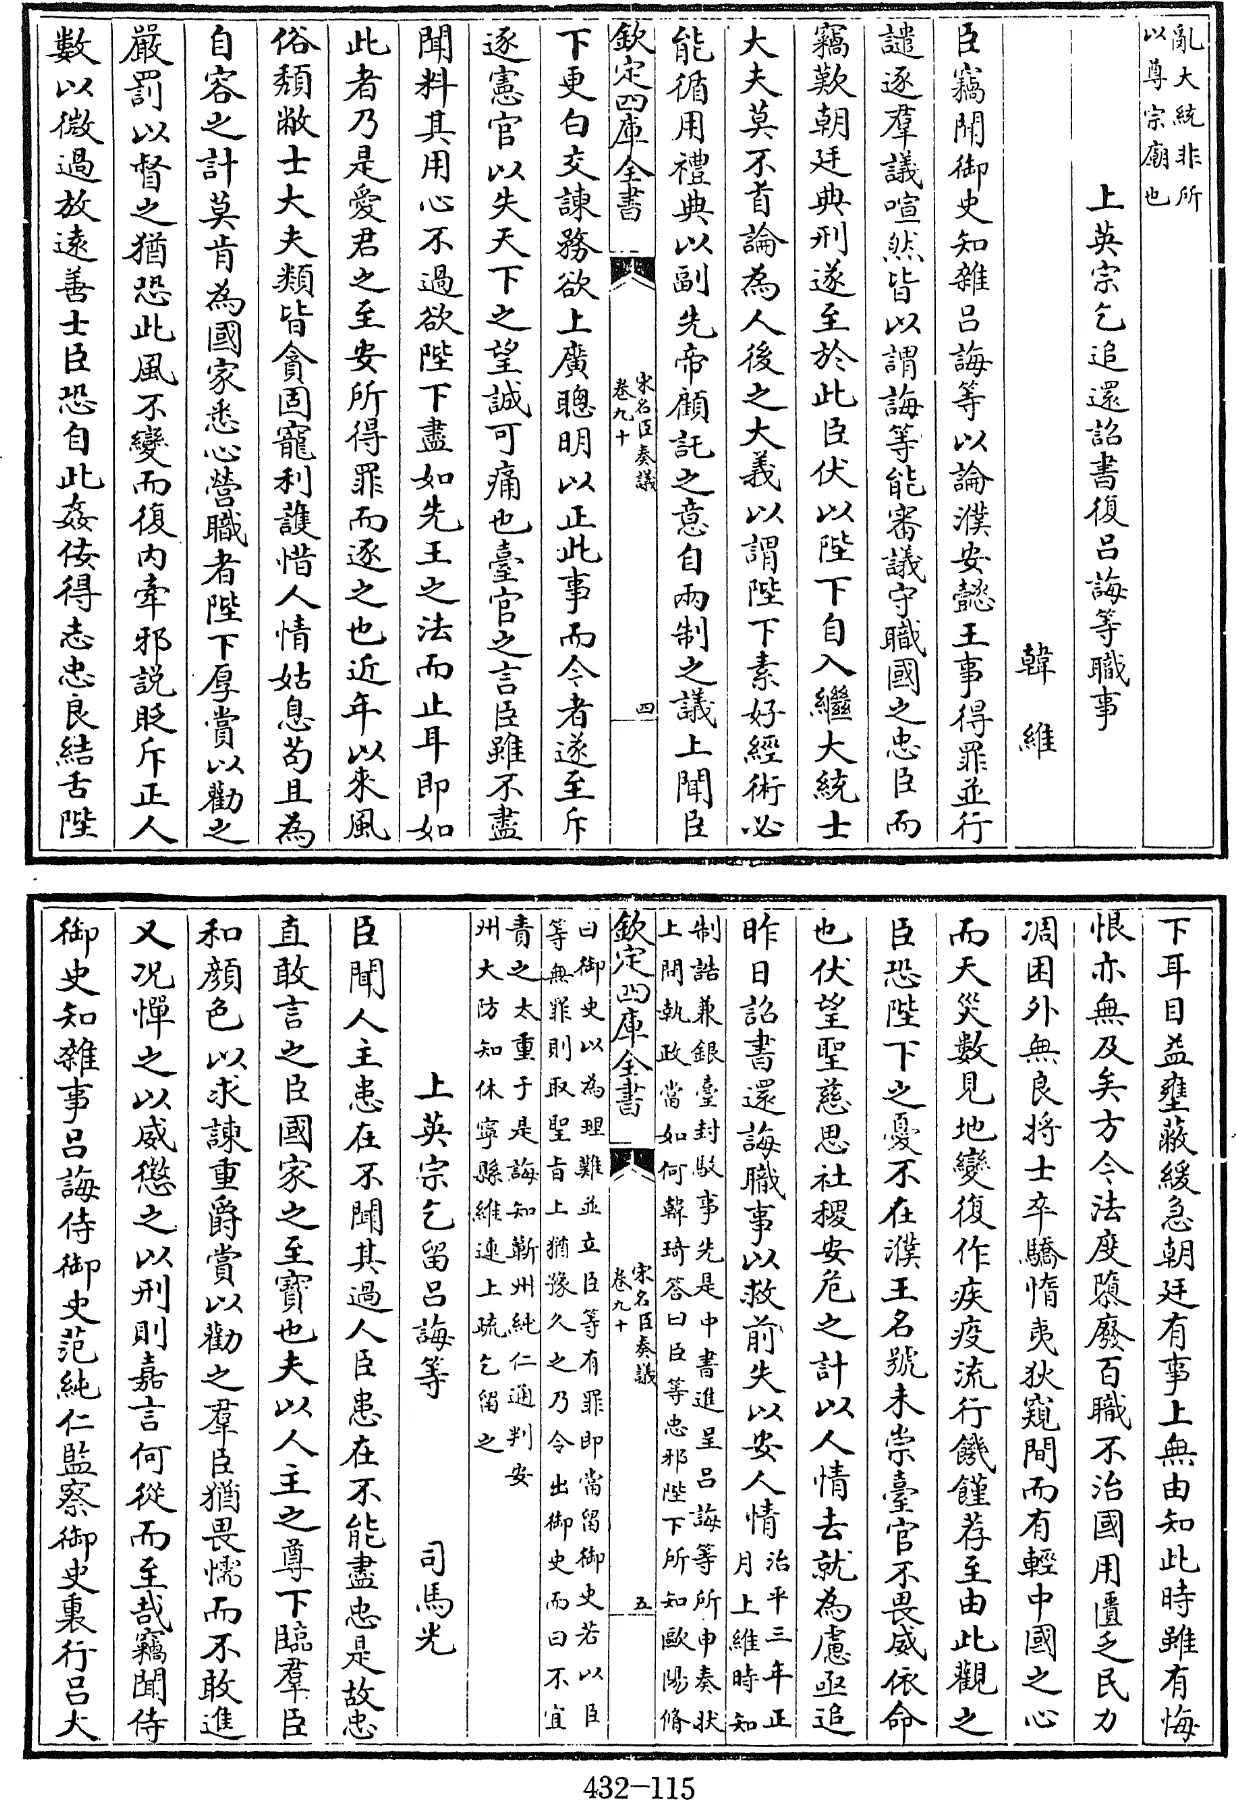 亂大統非所
以尊宗廟也
上英宗乞追還詔書復呂誨等職事
韓維
臣竊聞御史知雜呂誨等以論濮安懿王事得罪並行
譴逐羣議喧然皆以謂誨等能審議守職國之忠臣而
竊歎朝廷典刑遂至於此臣伏以陛下自入繼大統士
大夫莫不首論為人後之大義以謂陛下素好經術必
能循用禮典以副先帝顧託之意自兩制之議上聞臣
欽定四庫全書
宋名臣奏議
卷九十
四
下更白交諫務欲上廣聰明以正此事而今者遂至斥
逐憲官以失天下之望誠可痛也臺官之言臣雖不盡
聞料其用心不過欲陛下盡如先王之法而止耳即如
此者乃是愛君之至安所得罪而逐之也近年以來風
俗頹敝士大夫類皆貪固寵利護惜人情姑息苟且為
自容之計莫肯為國家悉心營職者陛下厚賞以勸之
嚴罰以督之猶恐此風不變而復內牽邪說貶斥正人
數以微過放遠善士臣恐自此姦佞得志忠良結舌陛
下耳目益壅蔽緩急朝廷有事上無由知此時雖有悔
恨亦無及矣方今法度隳廢百職不治國用匱乏民力
凋困外無良將士卒驕惰夷狄窺間而有輕中國之心
而天災數見地變復作疾疫流行饑饉荐至由此觀之
臣恐陛下之憂不在濮王名號未崇臺官不畏威依命
也伏望聖慈思社稷安危之計以人情去就為慮亟追
昨日詔書還誨職事以救前失以安人情
治平三年正
月上維時知
制誥兼銀臺封駁事先是中書進呈呂誨等所申奏狀
上問執政當如何韓琦答曰臣等忠邪陛下所知歐陽脩
欽定四庫全書
宋名臣奏議
卷九十
五
曰御史以為理難並立臣等有罪即當留御史若以臣
等無罪則取聖旨上猶豫久之乃令出御史而曰不宜
責之太重于是誨知蘄州純仁通判安
州大防知休寧縣維連上疏乞留之
上英宗乞留呂誨等
司馬光
臣聞人主患在不聞其過人臣患在不能盡忠是故忠
直敢言之臣國家之至寶也夫以人主之尊下臨羣臣
和顏色以求諫重爵賞以勸之羣臣猶畏懦而不敢進
又況憚之以威懲之以刑則嘉言何從而至哉竊聞侍
御史知雜事呂誨侍御史范純仁監察御史裏行呂大
432-115